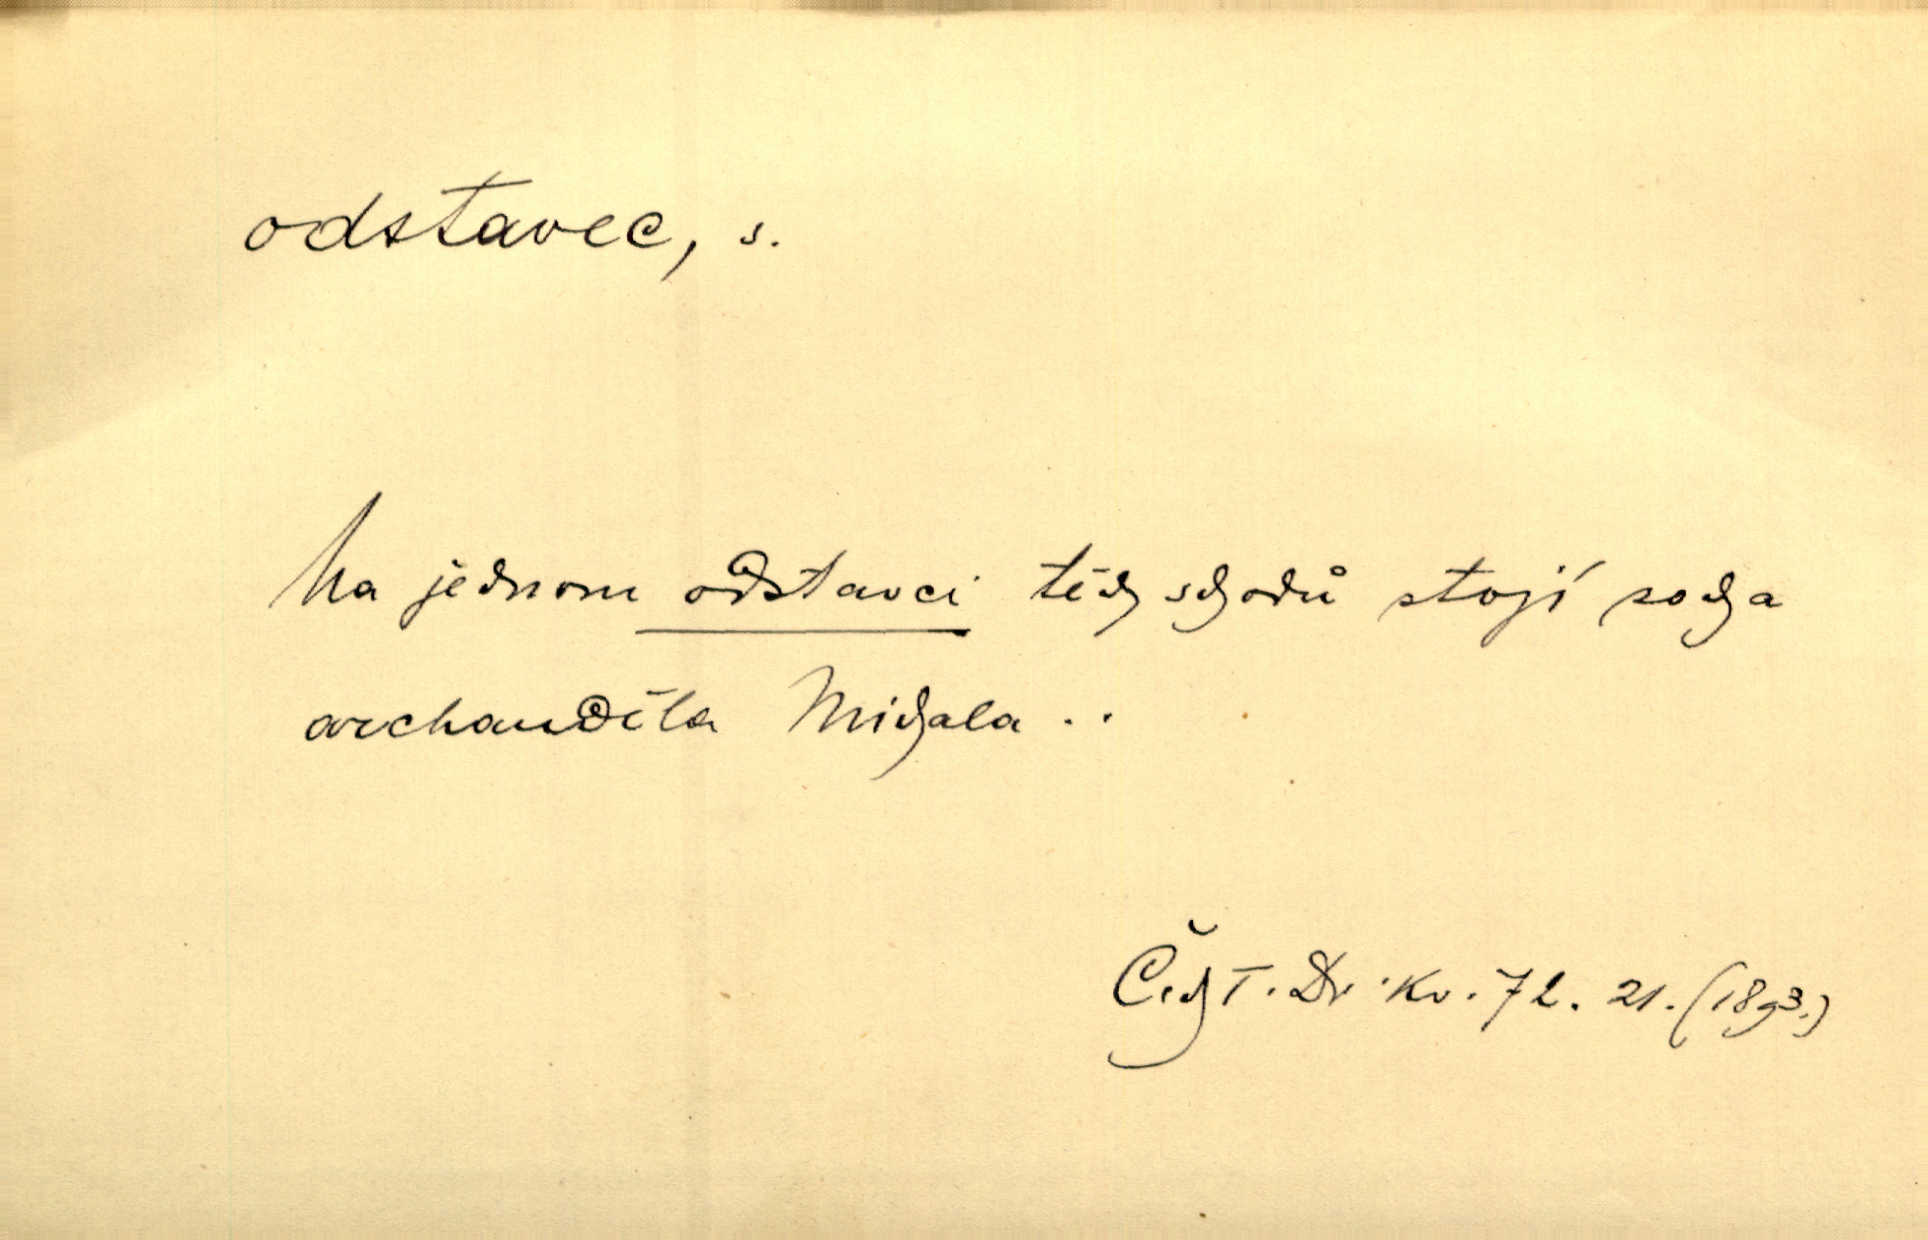 odstavec, s.
Na jednom odstavci těch schodů stojí socha
archanděla Michala ..
Čech T. Dr. Kv. 7 L. 21. (1893.)